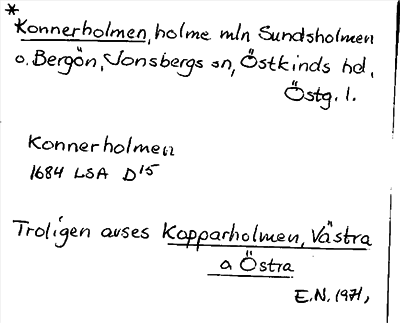 *
Konnerholmen, holme mln Sundsholmen
o. Bergön, Jonsbergs sn, Östkinds hd,
Östg. l.
Konnerholmen
1684 LSA D¹⁵
Troligen avses Kopparholmen, Västra
o Östra
E.N. 1971,